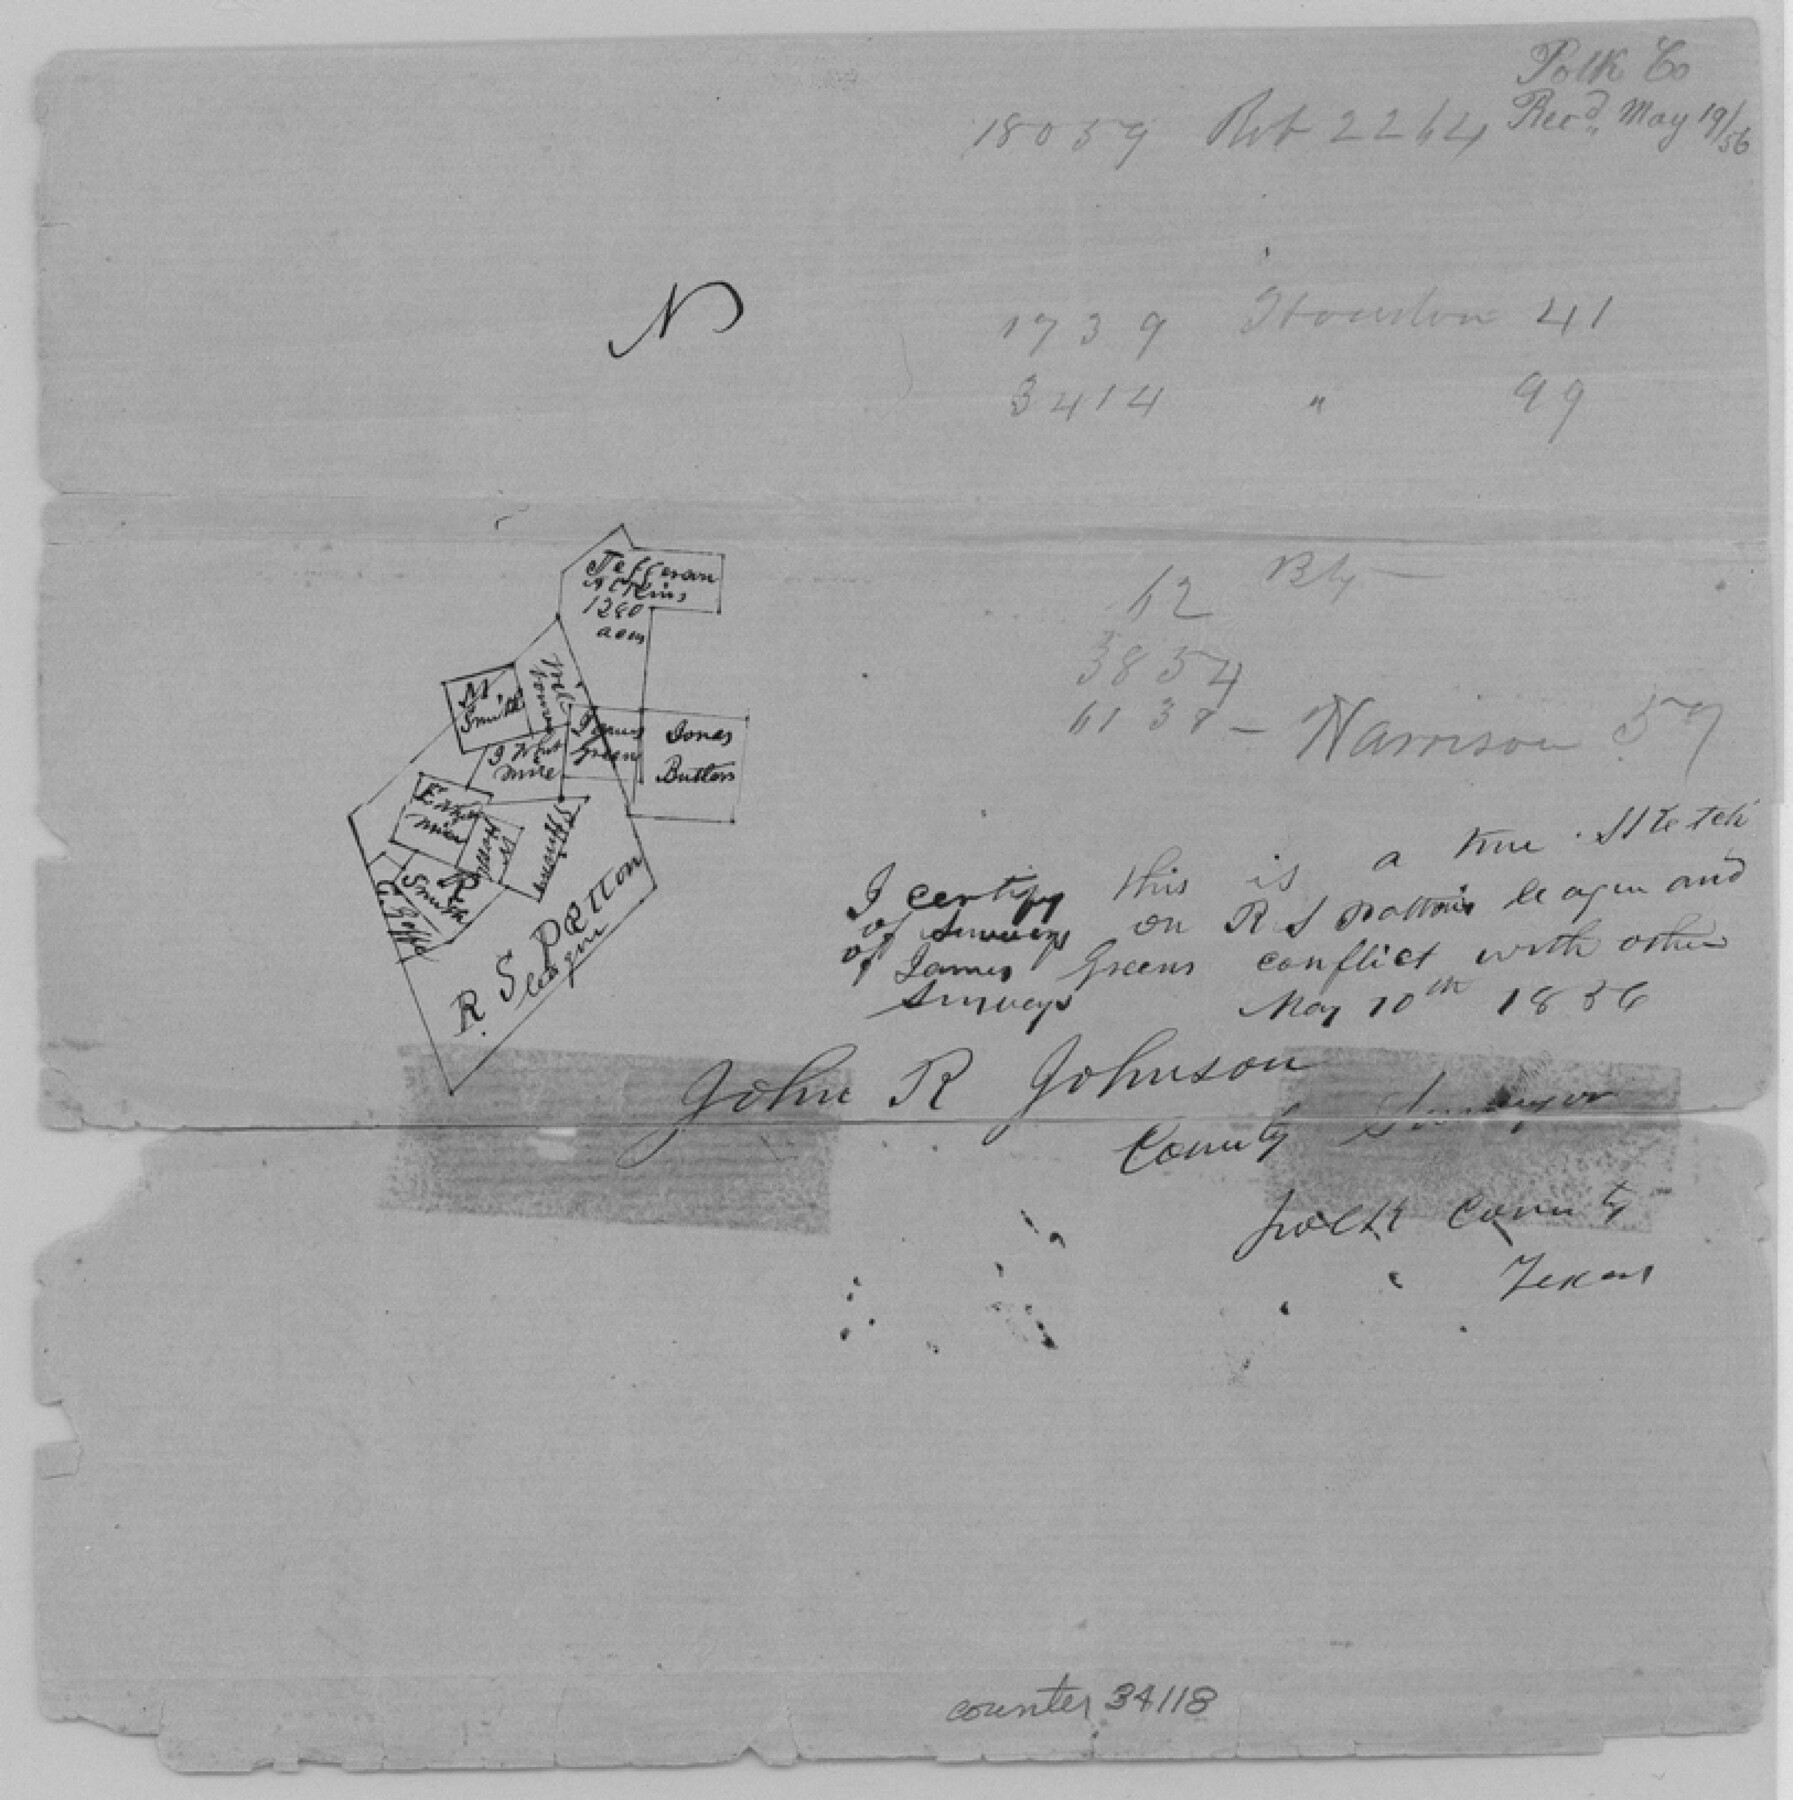 Polk Co
Rec'd May 19/56
18059 Rob 2264
N
1739 Houston 41
3414 " 99
Bty
62
3854
6137 - Harrison 57
Jefferson
Atkins
1280
acrs
M
Smith
James
Green
Jonas
Butlers
J Whit
mire
R
Smith
R. S. Patton
league
I certify this is a true Sketch
of Surveys on R S Pattons league and
of James Greens conflict with other
Surveys May 10th 1856
John R Johnson
County Surveyor
Polk County
Texas
counter 34118